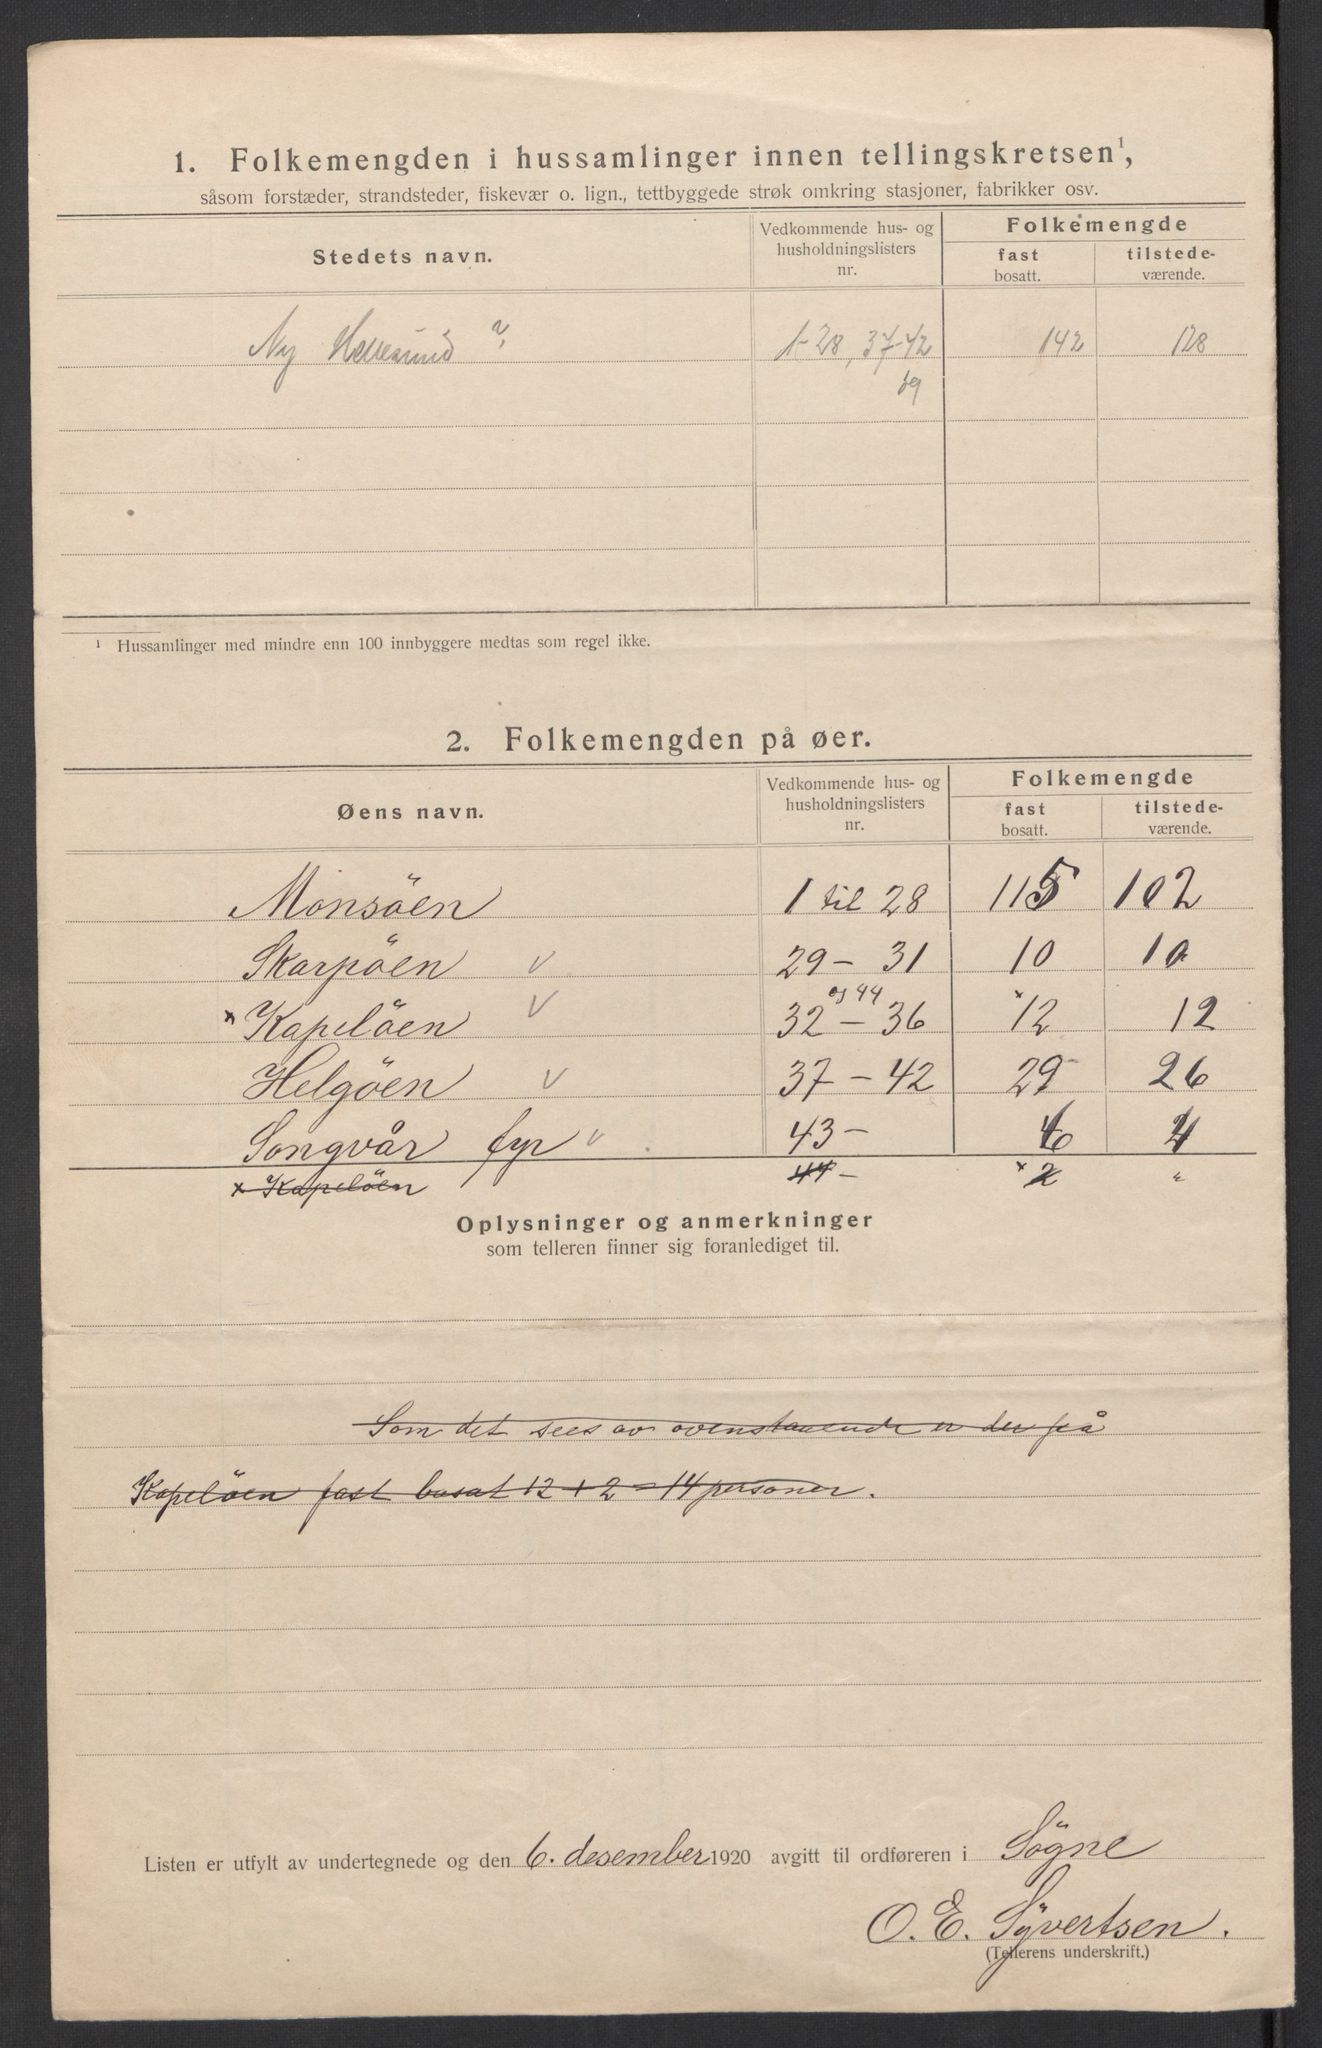 1. Folkemengden i hussamlinger innen tellingskretsen¹,
såsom forstæder, strandsteder, fiskevær o. lign., tettbyggede strøk omkring stasjoner, fabrikker osv.
Stedets navn. Vedkommende hus- og husholdningslisters nr. Folkemengde
fast bosatt. tilstede-værende.
Ny Hellesund ? 1-28, 37-42 142 128
¹ Hussamlinger med mindre enn 100 innbyggere medtas som regel ikke.
2. Folkemengden på øer.
Øens navn. Vedkommende hus- og husholdningslisters nr. Folkemengde
fast bosatt. tilstede-værende.
Monsöen 1 til 28 115 102
Skarpöen v 29 - 31 10 10
og 44
x Kapelöen v 32 - 36 x 12 12
Helgöen v 37 - 42 29 26
Songvår fyr v 43 - 6 4
x Kapelöen 44 - x 2 "
Oplysninger og anmerkninger
som telleren finner sig foranlediget til.
Som det sees av ovenstaaende er der på
Kapelöen fast bosat 12 + 2 = 14 personer.
Listen er utfylt av undertegnede og den 6. desember 1920 avgitt til ordføreren i Sögne
O. E. Syvertsen.
(Tellerens underskrift.)